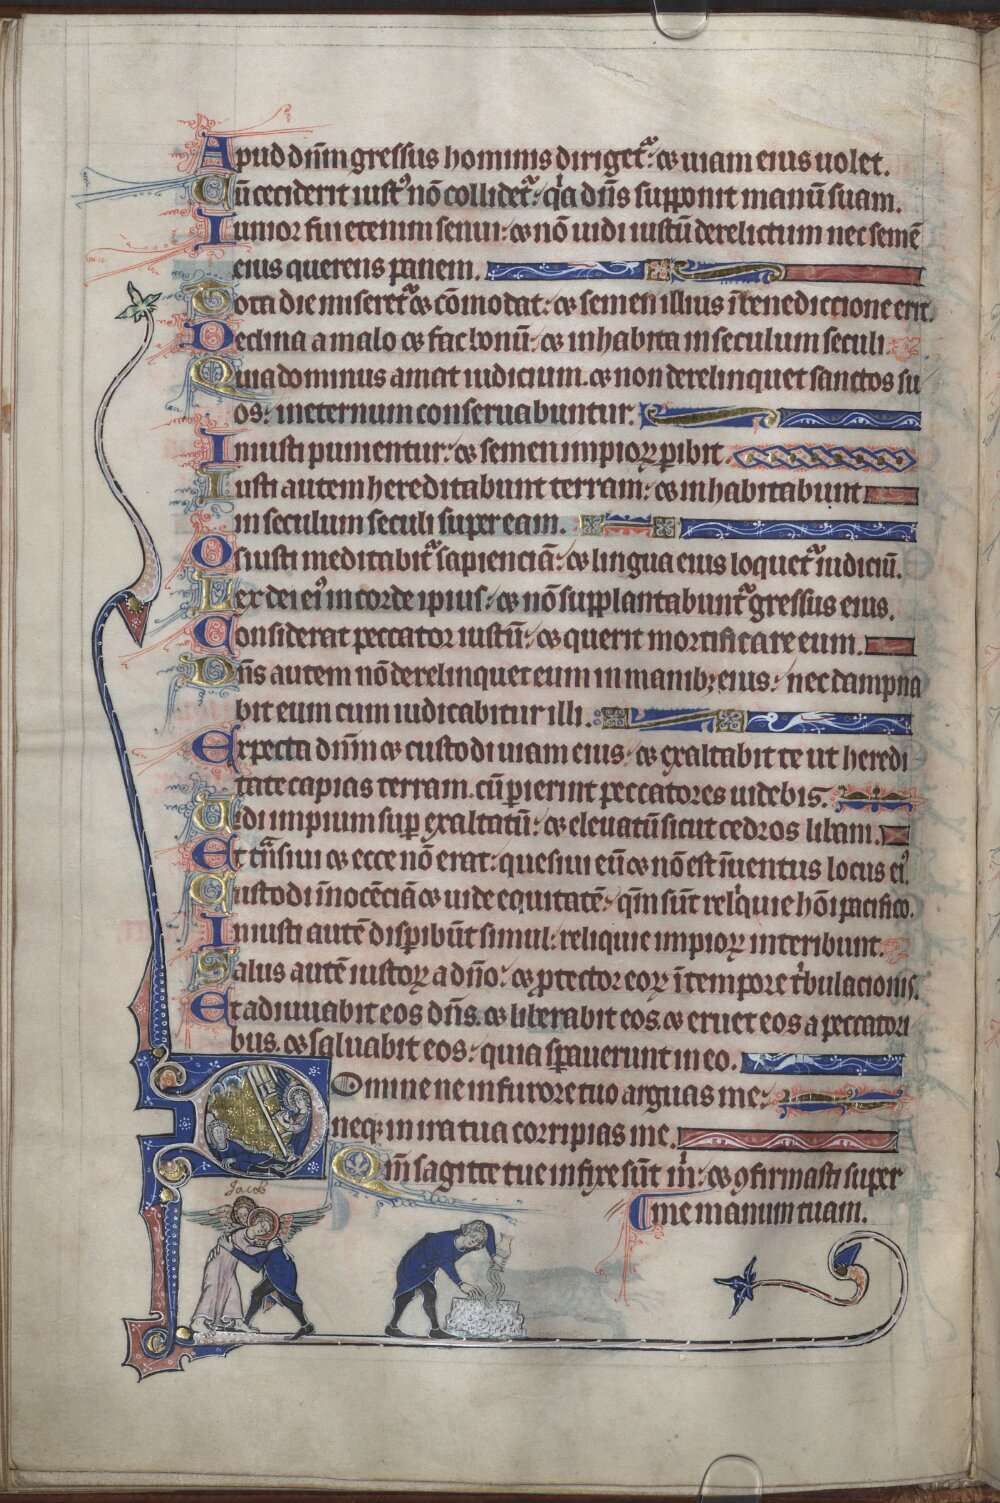 Apud dn̄m gressus hominis dirigetᷣ: ⁊ uiam eius uolet.
Cū ceciderit iustꝰ nō collidetᷣ: qͥa dn̄s supponit manū suam.
Iunior fui etenim senui: ⁊ nō uidi iustū derelictum nec semē
eius querens panem.
Tota die miseretᷣ ⁊ cōmodat: ⁊ semen illius ī benediccione erit.
Declina a malo ⁊ fac bonū: ⁊ inhabita in seculum seculi.
Quia dominus amat iudicium. ⁊ non derelinquet sanctos su
os: in eternum conseruabuntur.
Iniusti punientur: ⁊ semen impioꝝ ꝑibit.
Iusti autem hereditabunt terram: ⁊ inhabitabunt
in seculum seculi super eam.
Os iusti meditabitᷣ sapienciā: ⁊ lingua eius loquetᷣ iudiciū.
Lex dei eiꝰ in corde ipius: ⁊ nō supplantabuntᷣ gressus eius.
Considerat peccator iustū: ⁊ querit mortificare eum.
Dn̄s autem nō derelinquet eum in manibꝫ eius: nec dampna
bit eum cum iudicabitur illi.
Expecta dn̄m ⁊ custodi uiam eius: ⁊ exaltabit te ut heredi
tate capias terram. cū ꝑierint peccatores uidebis.
Uidi impium suꝑ exaltatū: ⁊ eleuatū sicut cedros libani.
Et tn̄siui ⁊ ecce nō erat: quesiui eū ⁊ nō est īuentus locus eiꝰ.
Custodi īnocēciā ⁊ uide equitatē: qm̄ sūt relͥquie hōi pacifico.
Iniusti autē disꝑibūt simul: reliquie impioꝝ interibunt.
Salus autē iustoꝝ a dn̄o: ⁊ ꝓtector eoꝝ ī tempore tͥbulacionis.
Et adiuuabit eos dn̄s. ⁊ liberabit eos. ⁊ eruet eos a peccatori
bus. ⁊ saluabit eos: quia sꝑauerunt in eo.
Domine ne in furore tuo arguas me:
neqꝫ in ira tua corripias me.
Qm̄ sagitte tue infixe sūt mͥ: ⁊ ꝯfirmasti super
me manum tuam.
Jacob